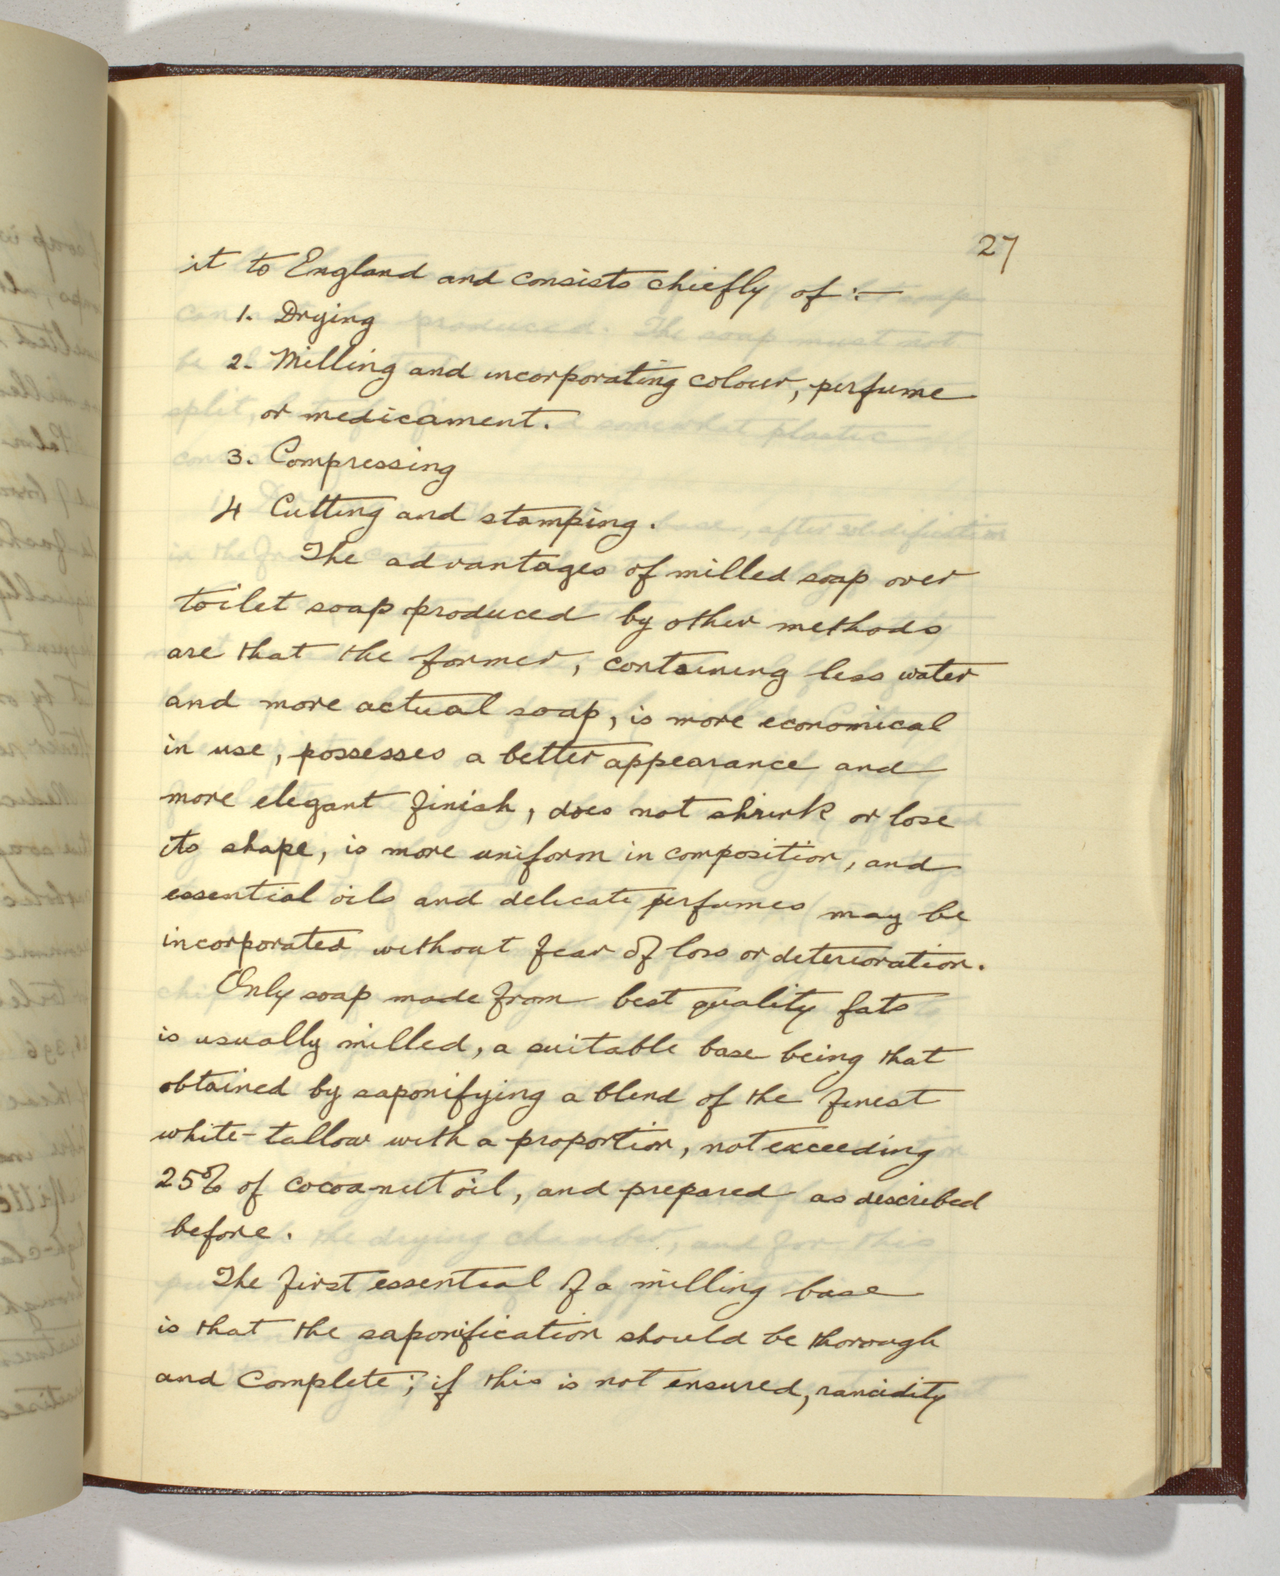 27
it to England and consists chiefly of :—
1. Drying
2. Milling and incorporating colour, perfume
or medicament.
3. Compressing
4 Cutting and stamping.
The advantages of milled soap over
toilet soap produced by other methods
are that the former, containing less water
and more actual soap, is more economical
in use, possesses a better appearance and
more elegant finish, does not shrink or lose
its shape, is more uniform in composition, and
essential oils and delicate perfumes may be
incorporated without fear of loss or deterioration.
Only soap made from best quality fats
is usually milled, a suitable base being that
obtained by saponifying a blend of the finest
white-tallow with a proportion, not exceeding
25% of cocoa-nut oil, and prepared as described
before.
The first essential of a milling base
is that the saponification should be thorough
and complete; if this is not ensured, rancidity